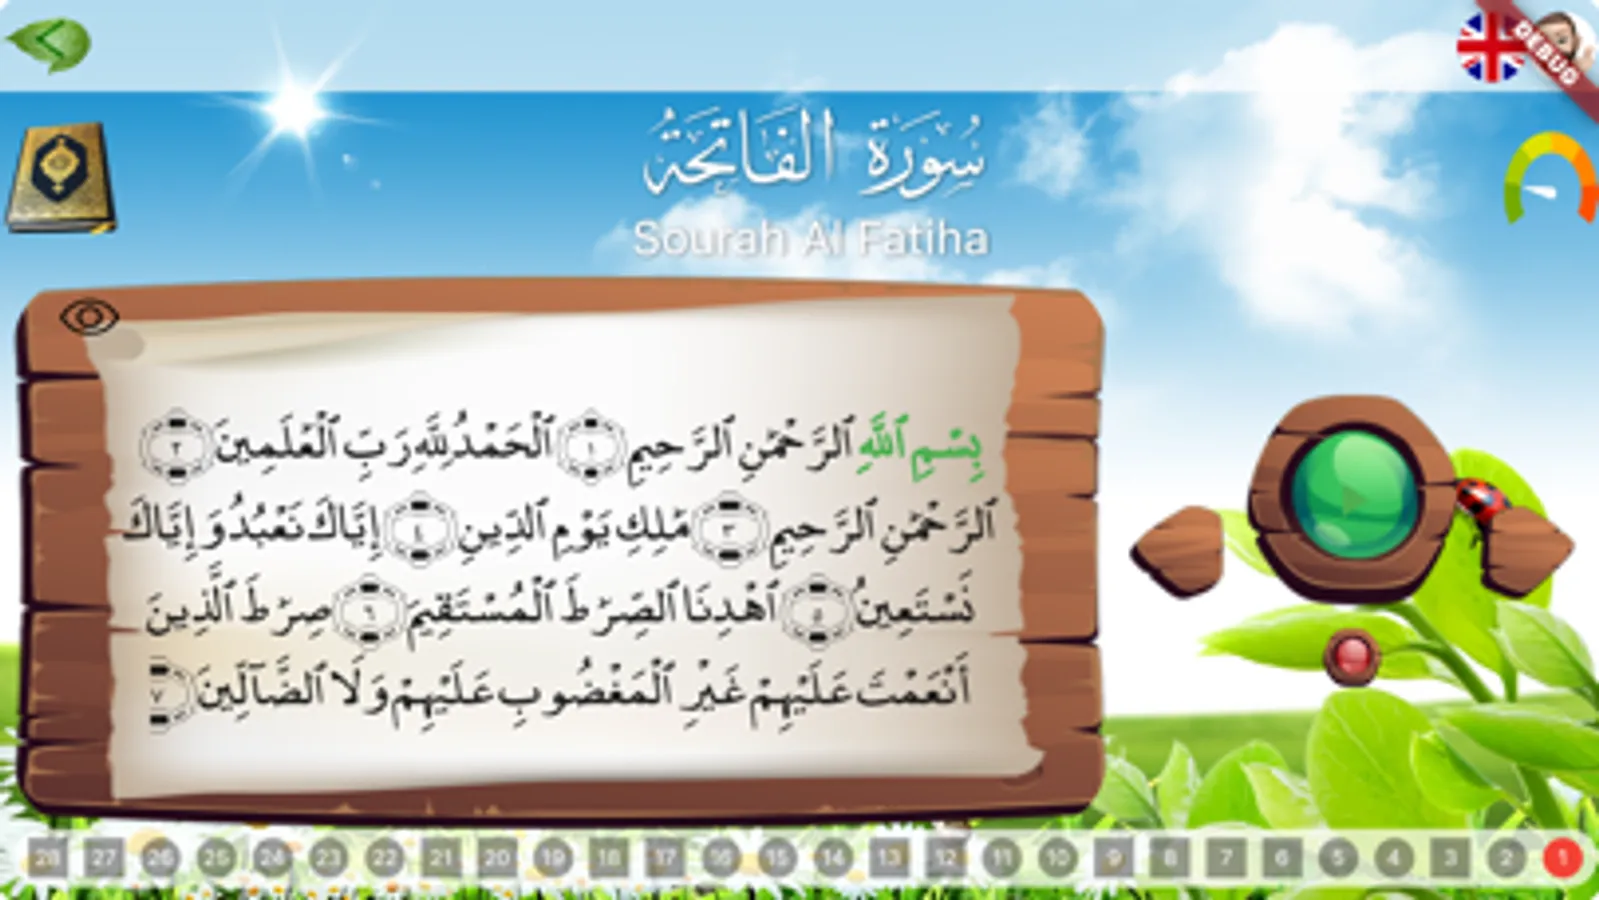 DEBUG
سُورَةُ الْفَاتِحَةُ
Sourah Al Fatiha
بِسْمِ ٱللَّهِ ٱلرَّحْمَٰنِ ٱلرَّحِيمِ ١ ٱلْحَمْدُ لِلَّهِ رَبِّ ٱلْعَٰلَمِينَ ٢
ٱلرَّحْمَٰنِ ٱلرَّحِيمِ ٣ مَٰلِكِ يَوْمِ ٱلدِّينِ ٤ إِيَّاكَ نَعْبُدُ وَإِيَّاكَ
نَسْتَعِينُ ٥ ٱهْدِنَا ٱلصِّرَٰطَ ٱلْمُسْتَقِيمَ ٦ صِرَٰطَ ٱلَّذِينَ
أَنْعَمْتَ عَلَيْهِمْ غَيْرِ ٱلْمَغْضُوبِ عَلَيْهِمْ وَلَا ٱلضَّآلِّينَ ٧
28 27 26 25 24 23 22 21 20 19 18 17 16 15 14 13 12 11 10 9 8 7 6 5 4 3 2 1